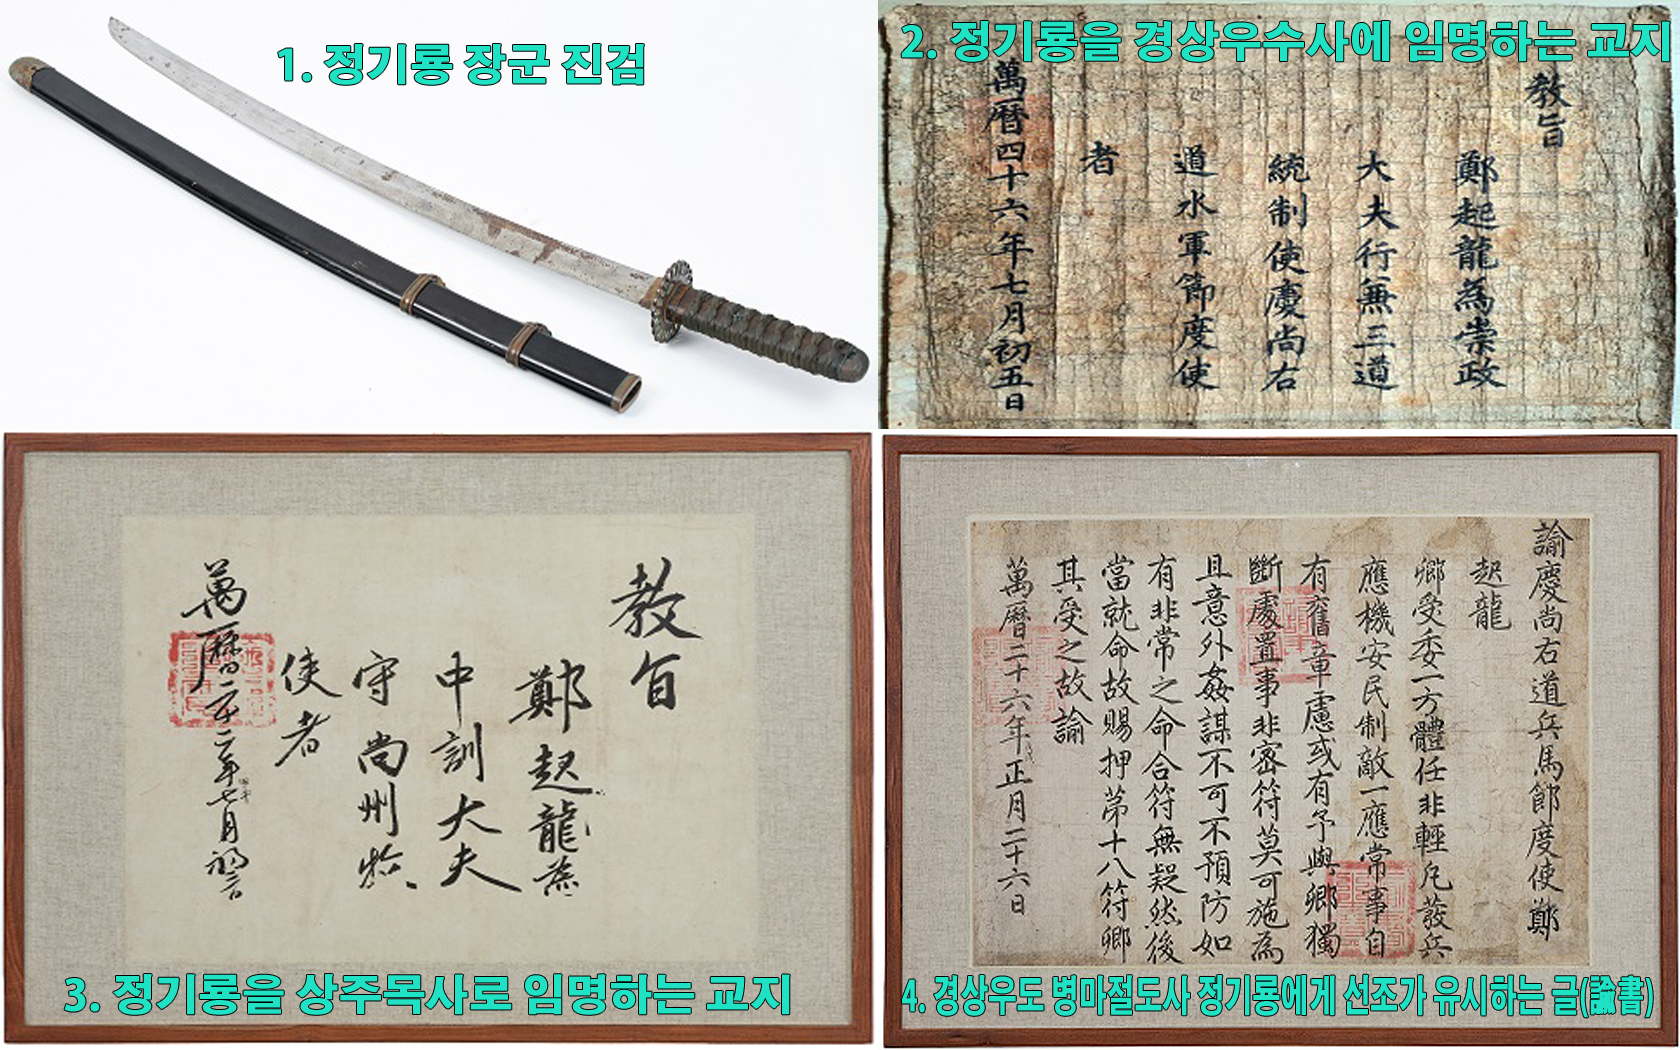 1. 정기룡 장군 진검
2. 정기룡을 경상우수사에 임명하는 교지
教旨
鄭起龍為崇政
大夫行無三道
統制使慶尚右
道水軍節度使
者
萬曆四十六年七月初五日
教旨
鄭起龍為
中訓大夫
守尚州牧
使者
萬曆二十二年七月初六日
3. 정기룡을 상주목사로 임명하는 교지
諭慶尚右道兵馬節度使鄭
起龍
卿受委一方體任非輕凡發兵
應機安民制敵一應常事自
有舊章慮或有予與卿獨
斷處置事非密符莫可施為
且意外姦謀不可不預防如
有非常之命合符無疑然後
當就命故賜押第十八符卿
其受之故諭
萬曆二十六年正月二十六日
4. 경상우도 병마절도사 정기룡에게 선조가 유시하는 글(諭書)